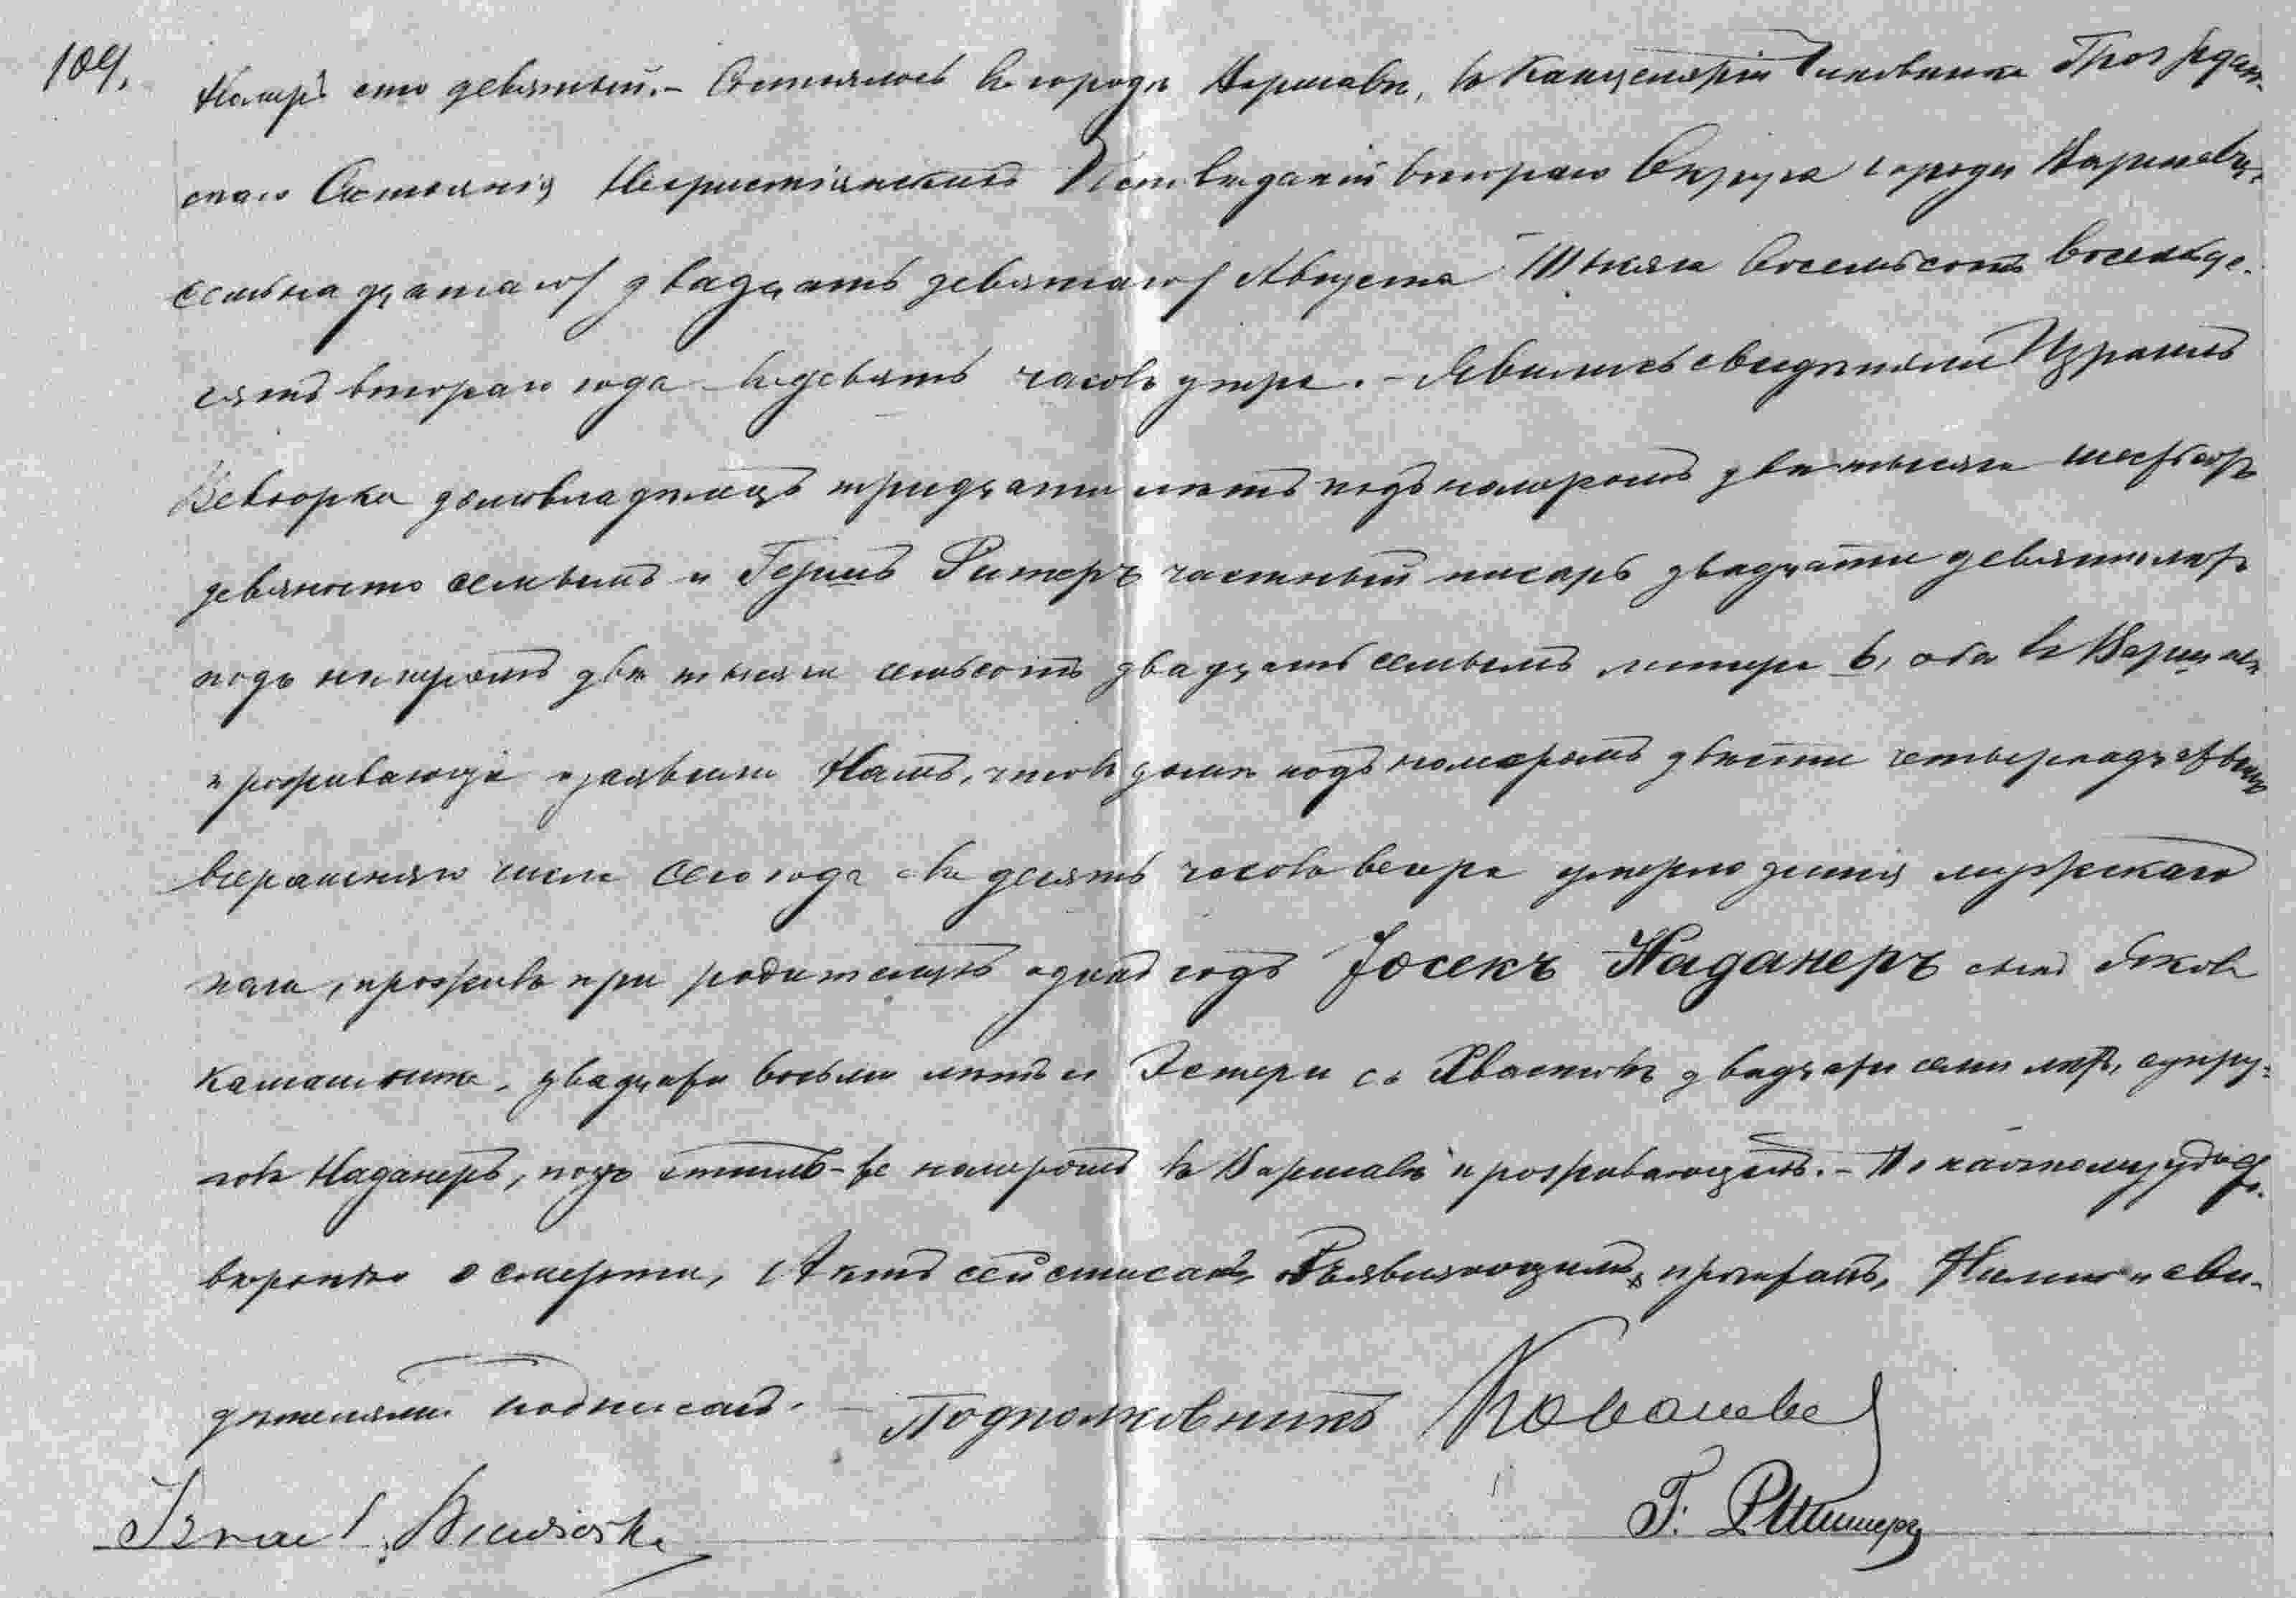 109.
Номеръ сто девятый. – Состоялось въ городѣ Варшавѣ, въ Канцеляріи Чиновника Граждан-
скаго Состоянія Нехристіанскихъ Исповѣданій втораго Округа города Варшавы,
семьнадцатаго/двадцать девятаго/ Августа Тысяча восемьсотъ восемьде-
сятъ втораго года въ девять часовъ утра. – Явились свидѣтели Израиль
Вевюрка домовладѣлецъ тридцати лѣтъ подъ номеромъ двѣ тысячи шестьсотъ
девяносто седьмымъ и Гершъ Ритеръ частный писарь двадцати девяти лѣтъ
подъ номеромъ двѣ тысячи семьсотъ двадцать седьмымъ литера b, оба въ Варшавѣ
проживающіе и заявили Намъ, что въ домѣ подъ номеромъ двѣсти четырнадцатымъ
вчерашняго числа сего года въ десять часовъ вечера умерло дитя мужескаго
пола, проживъ при родителяхъ одинъ годъ Іосекъ Наданеръ сынъ Якова
двадцати восьми лѣтъ и Эстеры съ Хвастовъ двадцати семи лѣтъ, супру-
говъ Наданеръ, подъ симъ-же номеромъ въ Варшавѣ проживающихъ. – По наочному удосто-
вѣренію о смерти, Актъ сей списанъ, объявляющимъ прочитанъ, Нами и сви-
дѣтелями подписанъ. – Подполковникъ
Israel Wiewiorka Г. Ритеръ